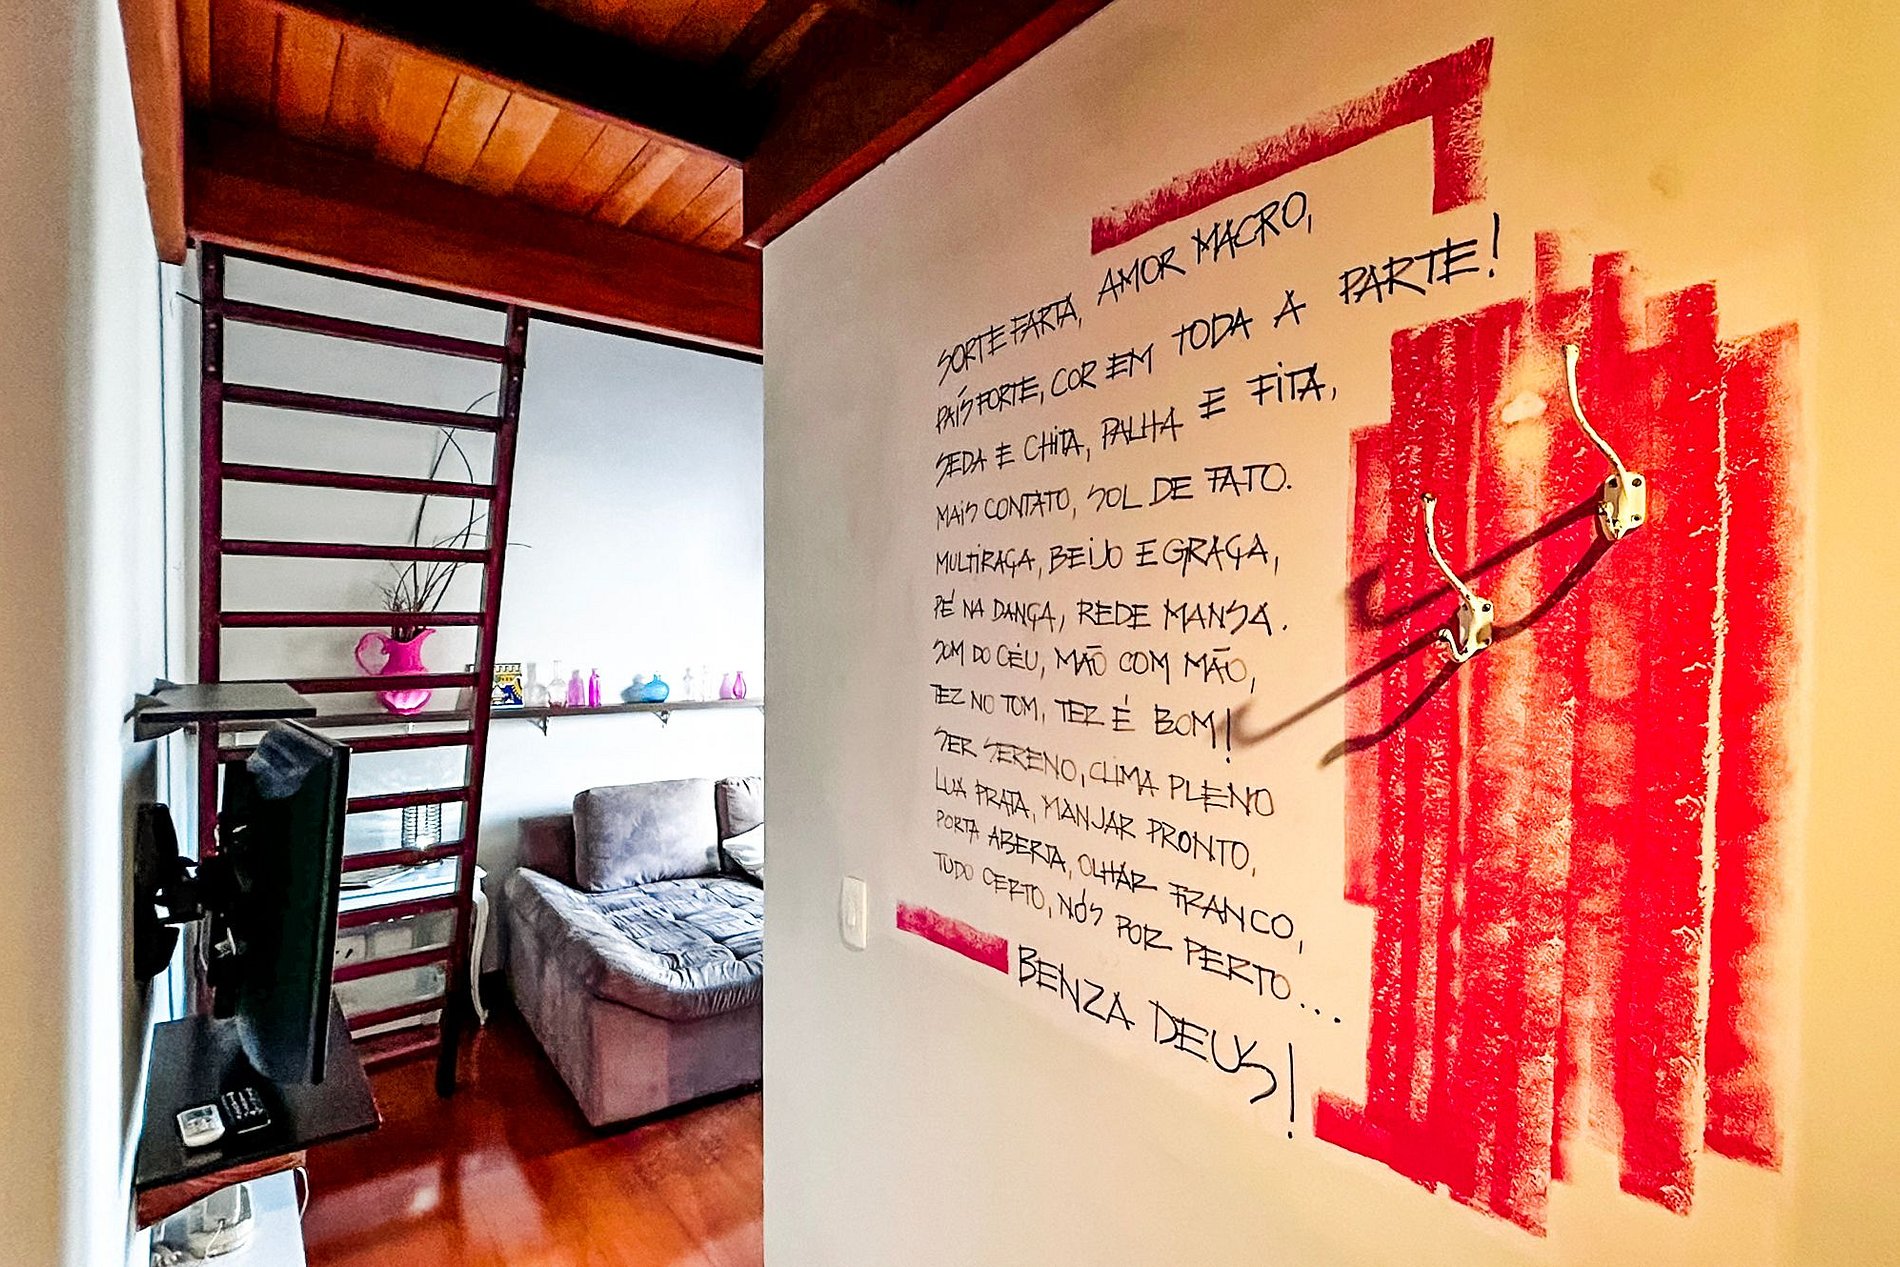 SORTE FARTA, AMOR MACRO,
PAÍS FORTE, COR EM TODA A PARTE!
SEDA E CHITA, PALHA E FITA,
MAIS CONTATO, SOL DE FATO.
MULTIRAÇA, BEIJO E GRAÇA,
PÉ NA DANÇA, REDE MANSA.
SOM DO CÉU, MÃO COM MÃO,
TEZ NO TOM, TEZ É BOM!
SER SERENO, CLIMA PLENO
LUA PRATA, MANJAR PRONTO,
PORTA ABERTA, OLHAR FRANCO,
TUDO CERTO, NÓS POR PERTO...
BENZA DEUS!